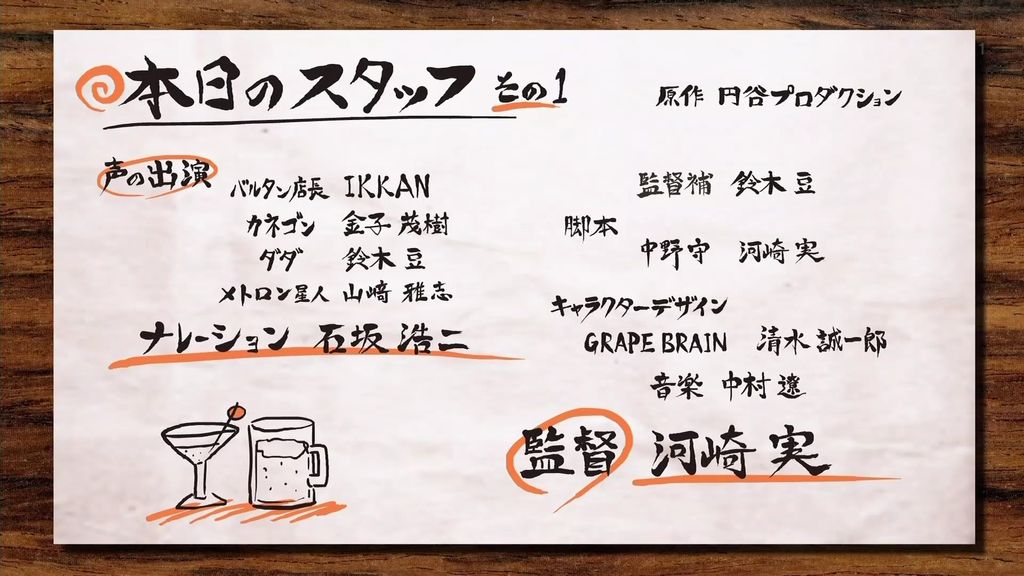 本日のスタッフ その1
原作 円谷プロダクション
声の出演
バルタン店長 IKKAN
カネゴン 金子 茂樹
ダダ 鈴木 豆
メトロン星人 山﨑 雅志
ナレーション 石坂 浩二
監督補 鈴木 豆
脚本
中野守 河崎 実
キャラクターデザイン
GRAPE BRAIN 清水 誠一郎
音楽 中村 遼
監督 河崎 実